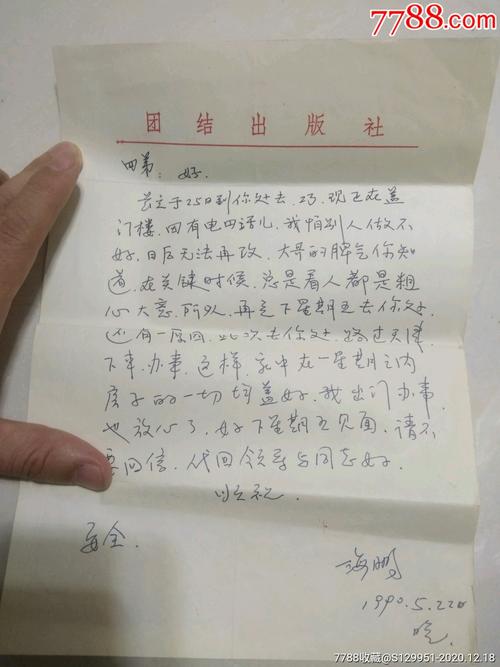 7788.com
团结出版社
四弟: 好.
于25日到你处去,巧,现正在盖
门楼,因有电四话儿,我怕别人做不
好,日后无法再改,大哥的脾气你知
道,在关键时候,总是看人都是粗
心大意,所以,再定下星期五去你处,
还有一原因,此次去你处,路过天津
下车,办事,这样,家中在一星期之内
房子的一切均盖好,我出门办事
也放心了,好下星期五见面,请不
要回信,代回领导与同志好.
此祝.
安全.
海鹏
1990.5.22日
晚.
7788收藏@S129951-2020.12.18